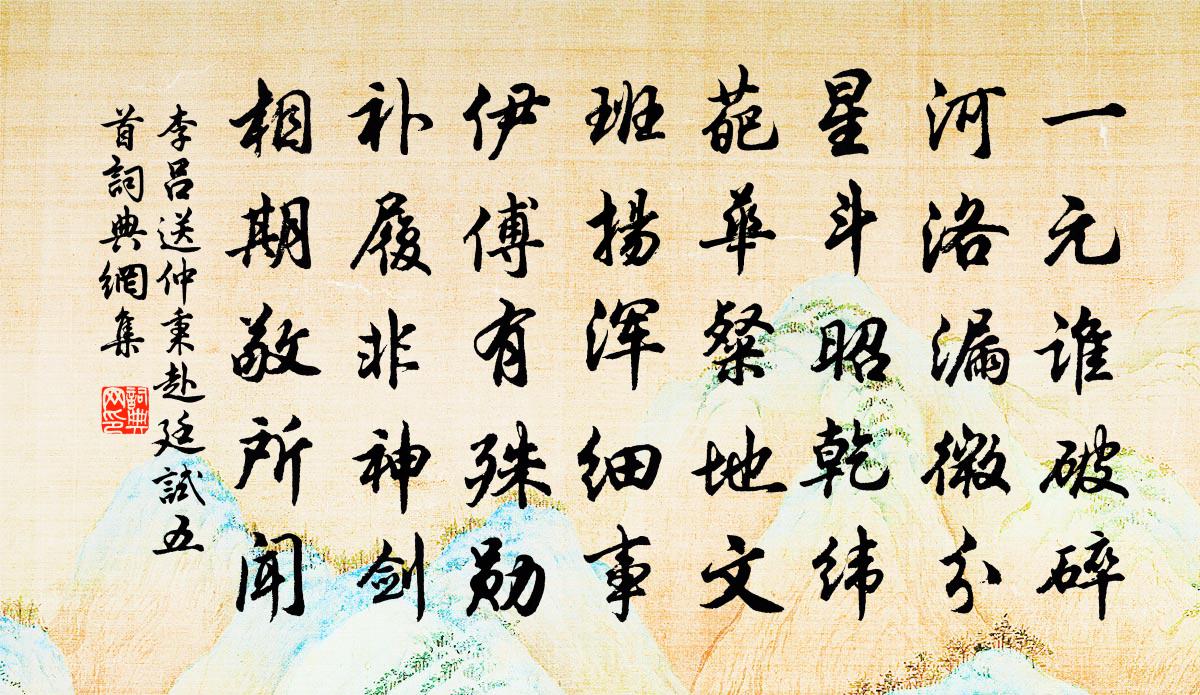 一元谁破碎
河洛漏微分
星斗昭乾纬
葩华粲地文
班扬浑细事
伊傅有殊勋
补履非神剑
相期敬所闻
李吕送仲秉赴廷試五
首詞典網集
詞典